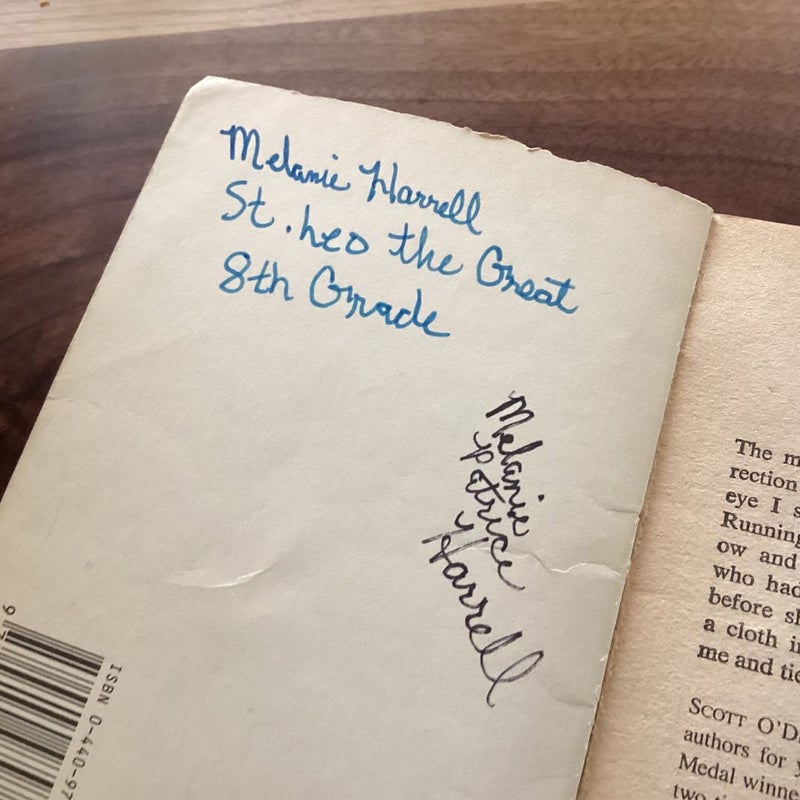 Melanie Harrell
St. Leo the Great
8th Grade
Melanie
Patrice
Harrell
9 7
ISBN 0-440-97
The m
rection
eye I s
Running
ow and
who had
before sh
a cloth i
me and tie
SCOTT O'D
authors for y
Medal winne
two ti